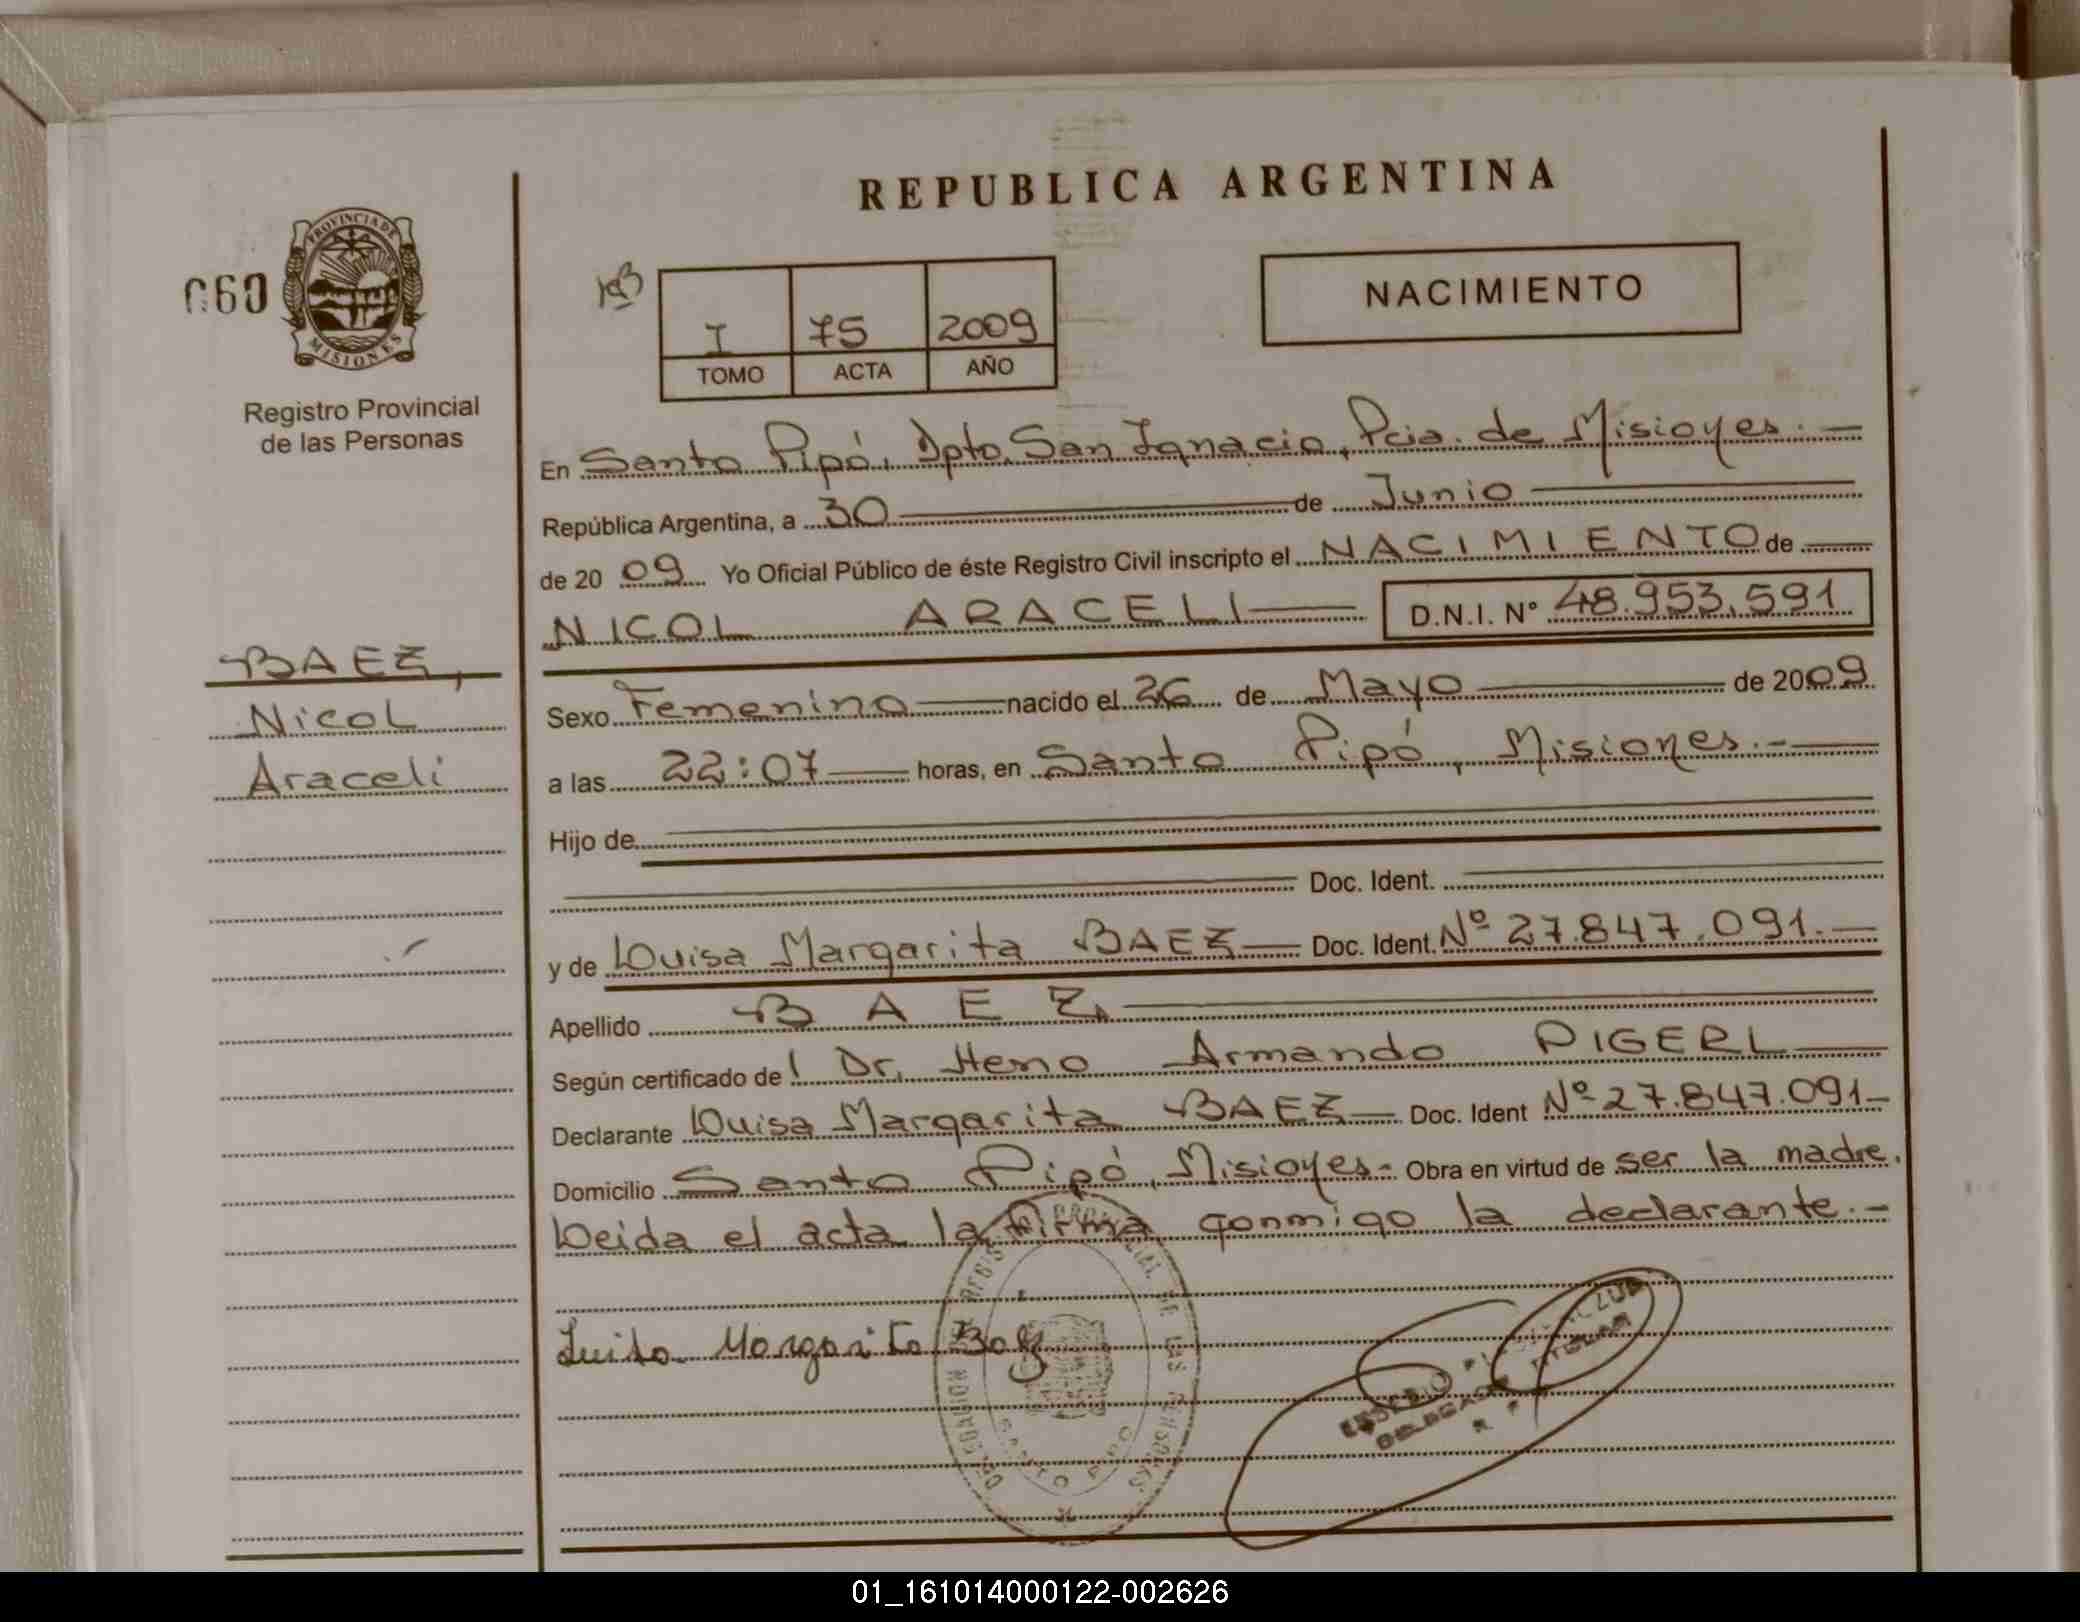 REPUBLICA ARGENTINA
060
PROVINCIA DE MISIONES
I 75 2009
TOMO ACTA AÑO
NACIMIENTO
Registro Provincial
de las Personas
En Santo Pipó, Dpto. San Ignacio, Pcia. de Misiones.-
República Argentina, a 30 de Junio
de 2009 Yo Oficial Público de éste Registro Civil inscripto el NACIMIENTO de
NICOL ARACELI D.N.I. Nº 48.953.591
BAEZ,
Nicol
Araceli
Sexo Femenino nacido el 26 de Mayo de 2009
a las 22:07 horas, en Santo Pipó, Misiones.-
Hijo de
Doc. Ident.
y de Luisa Margarita BAEZ Doc. Ident. Nº 27.847.091.-
Apellido BAEZ
Según certificado del Dr. Heno Armando PIGERL
Declarante Luisa Margarita BAEZ Doc. Ident Nº 27.847.091-
Domicilio Santo Pipó, Misiones.- Obra en virtud de ser la madre.
Leida el acta la firma conmigo la declarante.-
Luisa Margarita Baez
DELEGACION REGISTRO PROVINCIAL DE LAS PERSONAS
SANTO PIPO
EUSEBIO
TITULAR
01_161014000122-002626